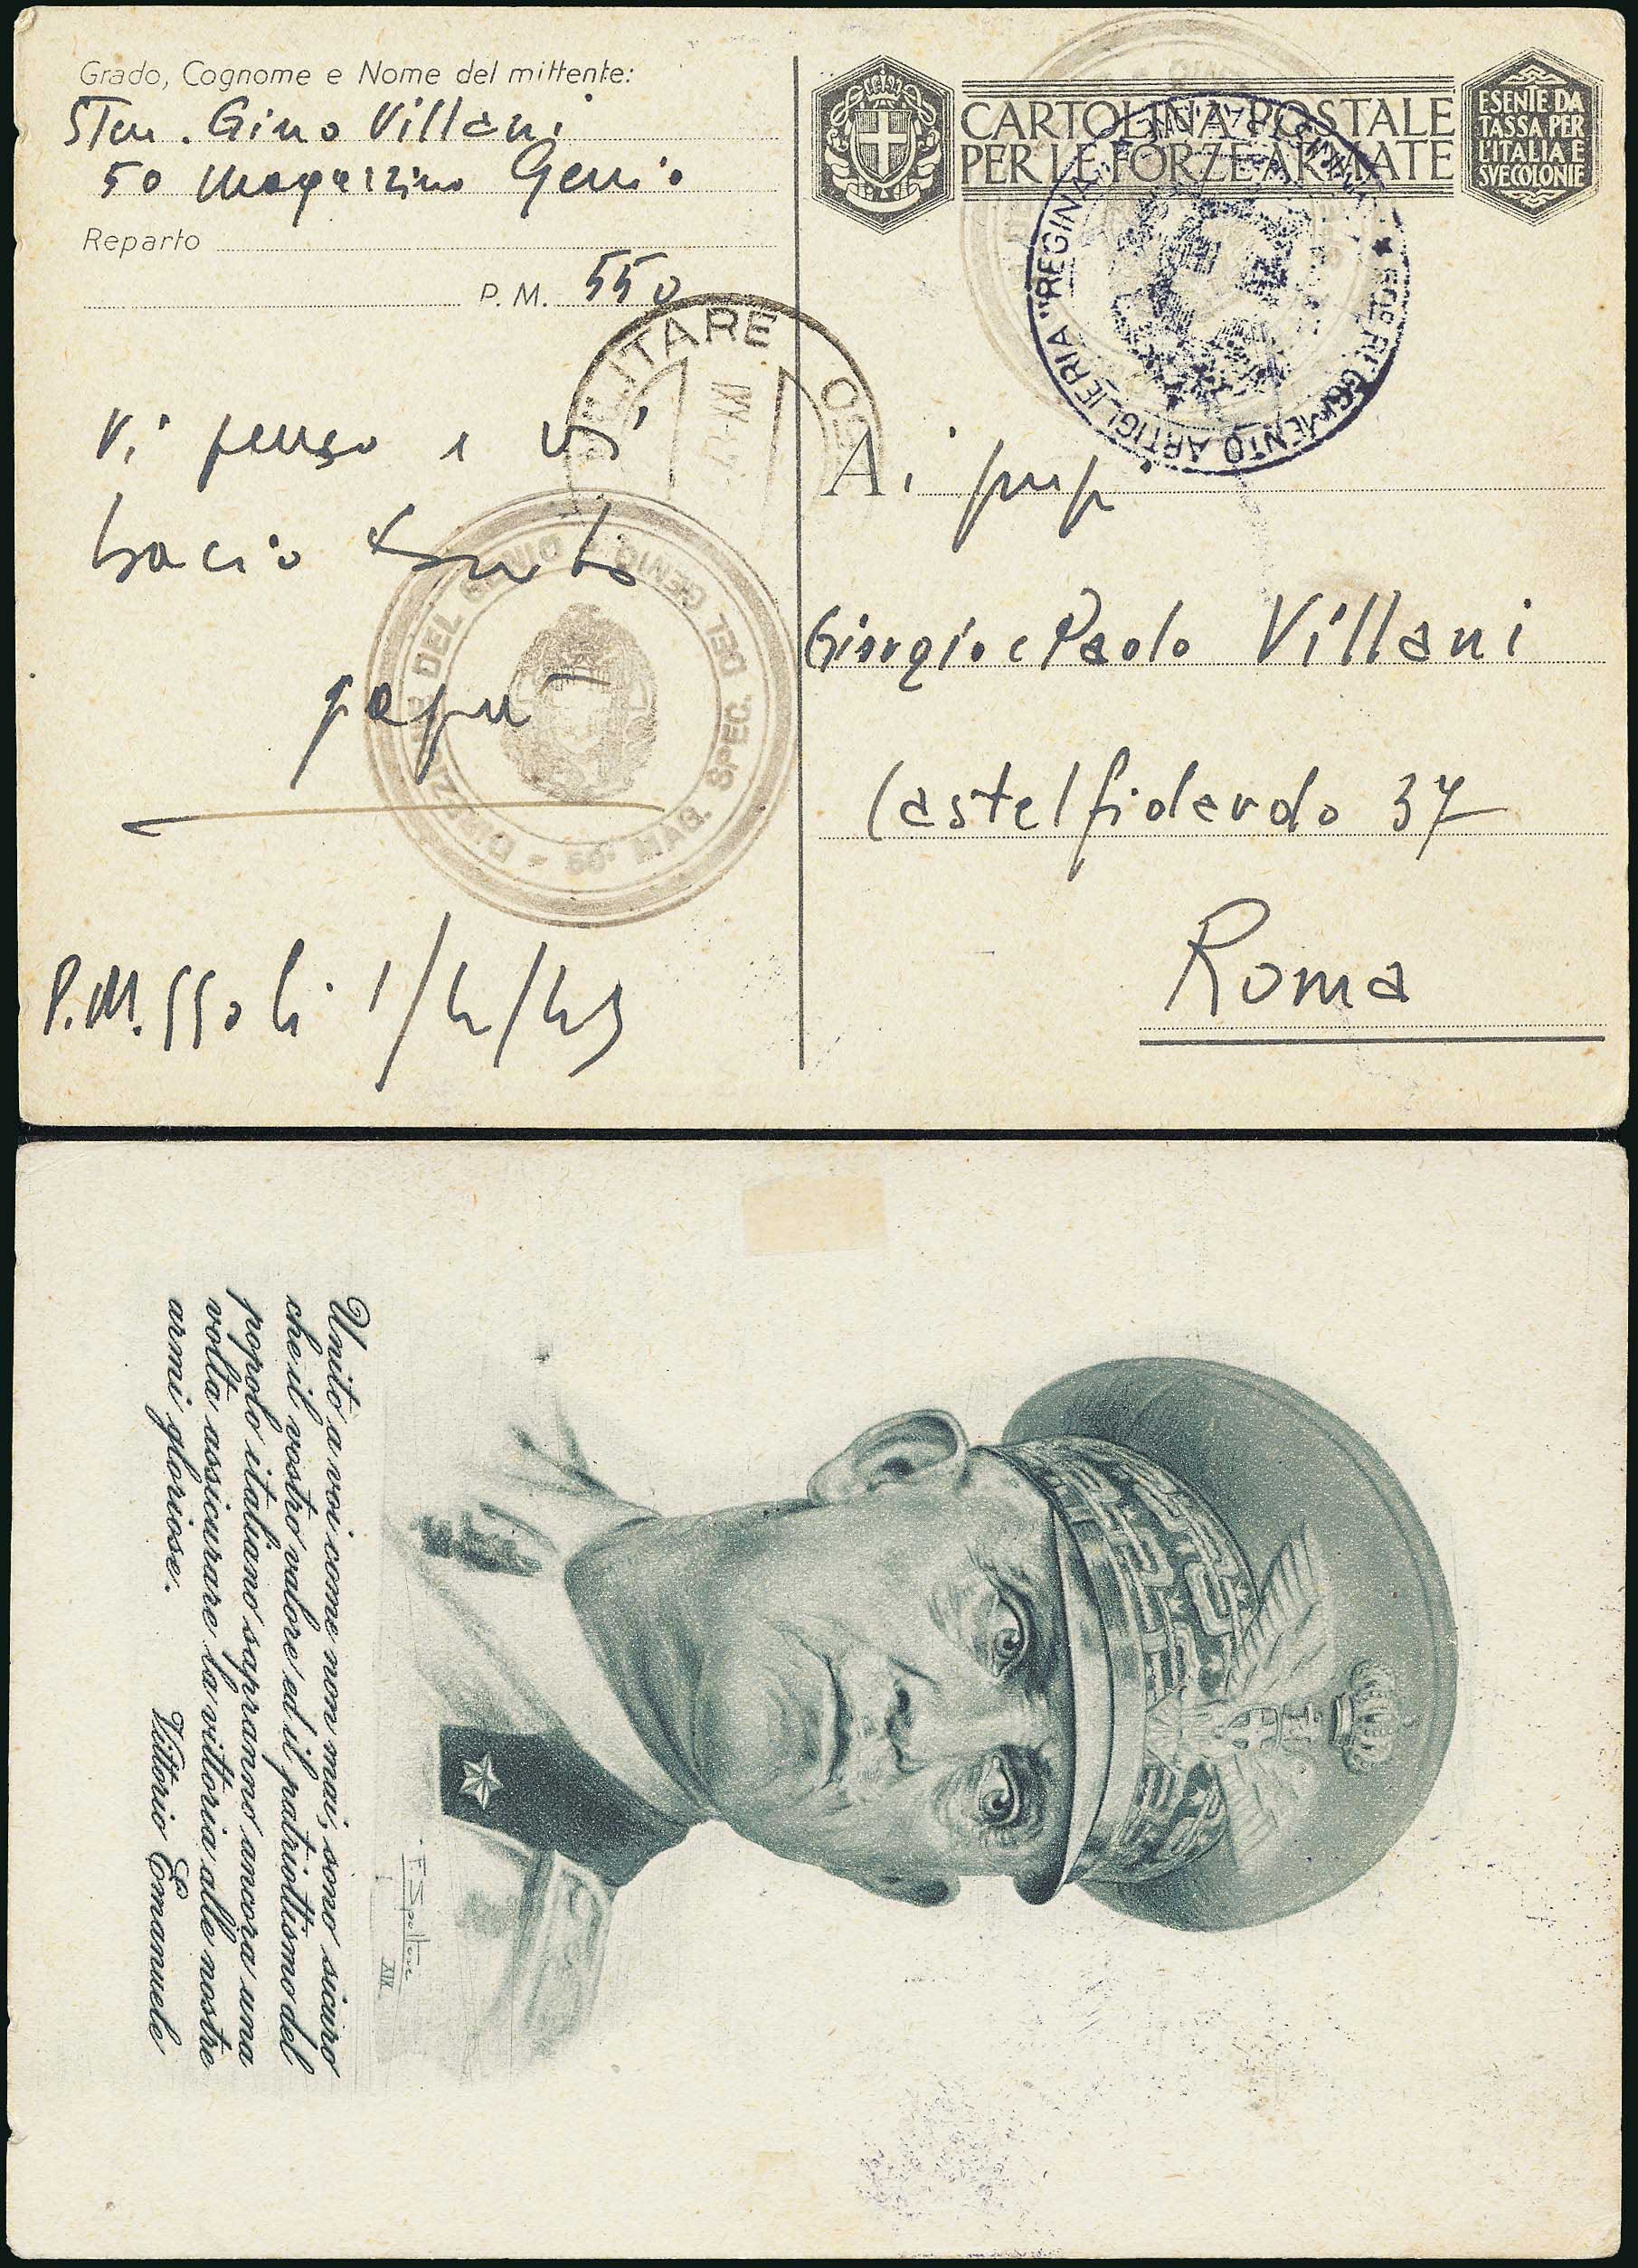 Grado, Cognome e Nome del mittente:
STen. Gino Villani
50 Magazzino Genio
Reparto
P. M. 550
CARTOLINA POSTALE
PER LE FORZE ARMATE
ESENTE DA
TASSA PER
L'ITALIA E
SVE COLONIE
MILITARE
XXI
REGGIMENTO ARTIGLIERIA "REGINA"
Vi penso e vi
bacio
papà
DEL GENIO
50° MAG. SPEC. DEL GENIO
P.M. 550 li 1/4/43
Ai
Giorgio e Paolo Villani
Castelfidardo 37
Roma
Unito a voi come non mai, sono sicuro
che il vostro valore ed il patriottismo del
popolo italiano sapranno ancora una
volta assicurare la vittoria alle nostre
armi gloriose.
Vittorio Emanuele
XIX